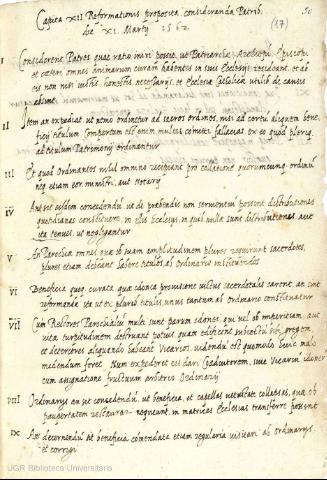 Capita XII Reformationis proposita consideranda Patrib.
die XI. Martij 1562
(17)
50
I Considerent Patres quae ratio iniri possit, ut Patriarchae, Archiepi Episcopi
et caeteri omnes animarum curam habentes in suis Ecclesijs resideant, et ab
eis non nisi iustis honestis necessarijs, et Ecclesiae Catholicae utilib. de causis
absint.
II Item an expediat ut nemo ordinetur ad sacros ordines, nisi ad certum alique bene
ficij titulum compertum est enim multas committi fallacias ex eo quod plerique
ad titulum Patrimonij ordinantur
III Et quod Ordinantes nihil omnino recipiant pro collatione quorumcunque ordinum
neq. etiam eorum ministri, aut notarij
IV An sit eisdem concedendum ut de prebendis non servientium possent distributiones
quotidianas constituere, in illis Ecclesijs, in quib. nulla sunt distributiones, aut
ita tenues, ut negligantur
V An Parochiae omnes, quae ob suam amplitudinem plures requirunt sacerdotes,
plures etiam debeant habere titulos, ab Ordinarijs instituendos
VI Beneficia quoque curata, quae idonea provisione unius sacerdotalis carent, an sint
reformanda ita ut ex plurib. titulis unus tantum ab Ordinario constituatur
VII Cum Rectores Parochiales multi sint parum idonei, qui vel ob imperitiam, aut
vita turpitudinem destruant potius quam edificent
et deteriores aliquando habeant Vicarios, videndum est quomodo huic malo
medendum foret. Num expediret eis dari Coadiutores, sive Vicarios idoneos
cum assignatione fructuum arbitrio Ordinarij
VIII Ordinarijs an sit concedendum, ut beneficia, et capellas vetustate collapsas, quae ob
paupertatem restaurari nequeunt, in matrices Ecclesias transferre possint
IX An decernendum ut beneficia comendata etiam regularia visitari ab Ordinarijs
et corrigi
UGR Biblioteca Universitaria